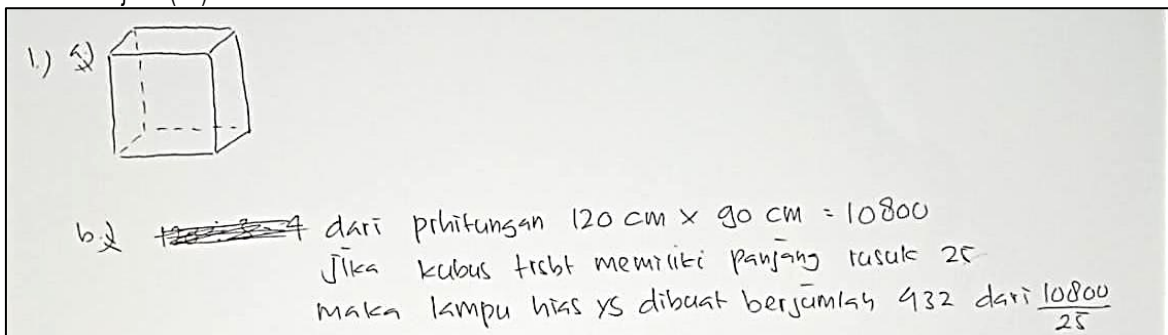 1.) a.)
b.) dari prhitungan 120 cm x 90 cm = 10800
Jika kubus trsbt memiliki panjang rusuk 25
maka lampu hias yg dibuat berjumlah 432 dari 10800/25